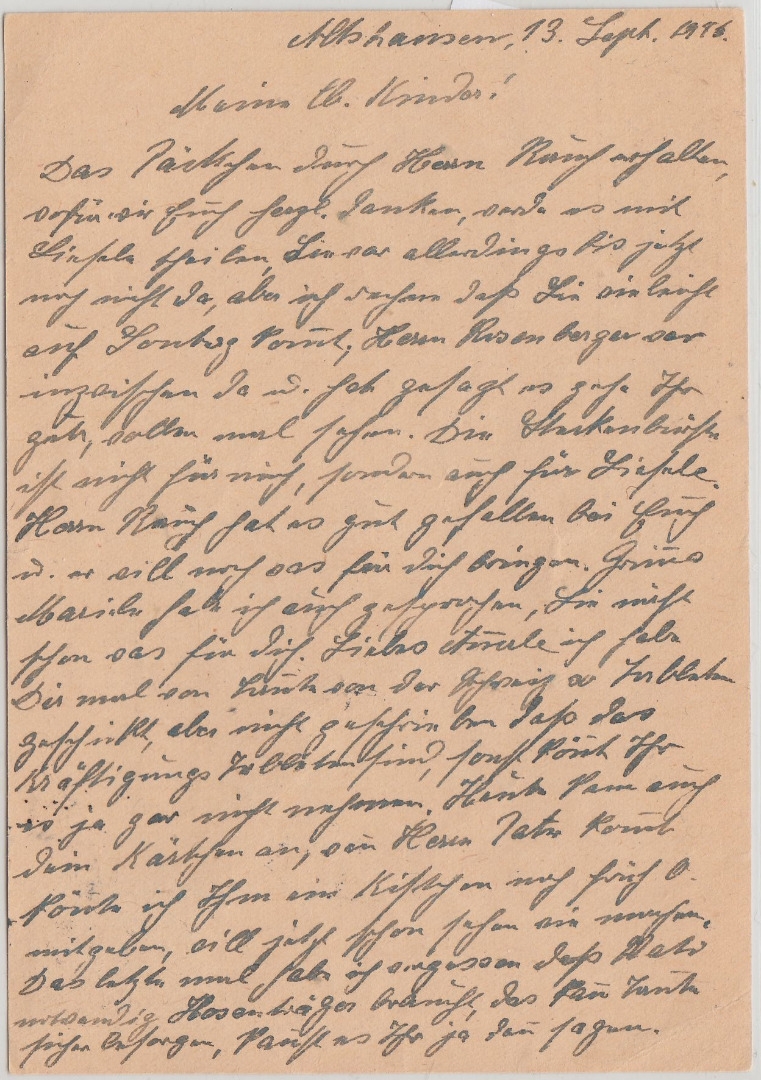 Altshausen, 13. Sept. 1946.
Meine lb. Kinder!
Das Päckchen durch Herrn Rauch erhalten,
wofür wir Euch herzl. danken, werde es mit
Liesele theilen, Sie war allerdings bis jetzt
noch nicht da, aber ich rechne daß Sie vieleicht
auf Sontag komt, Herrn Rosenberger war
inzwischen da u. hat gesagt es gehe Ihr
gut, wollen mal sehen. Die
ist nicht für mich, sondern auch für Liesele.
Herrn Rauch hat es gut gefallen bei Euch
u. er will noch was für dich bringen.
Mariele habe ich auch gesprochen, Sie näht
schon was für dich. Liebes ich habe
Dir mal von Tante von der Schweiz so Tableten
geschickt, aber nicht geschrieben daß das
Kräftigungs Tableten sind, sonst könt Ihr
es ja gar nicht nehmen. Heute kam auch
dein Kärtchen an, wen Herrn komt
könte ich Ihm ein Kistchen noch früh O.
mitgeben, will jetzt schon sehen wie machen.
Das letzte mal habe ich vergessen daß
notwendig Hosenträger braucht, das kan Tante
sicher besorgen, kanst es Ihr ja dan sagen.